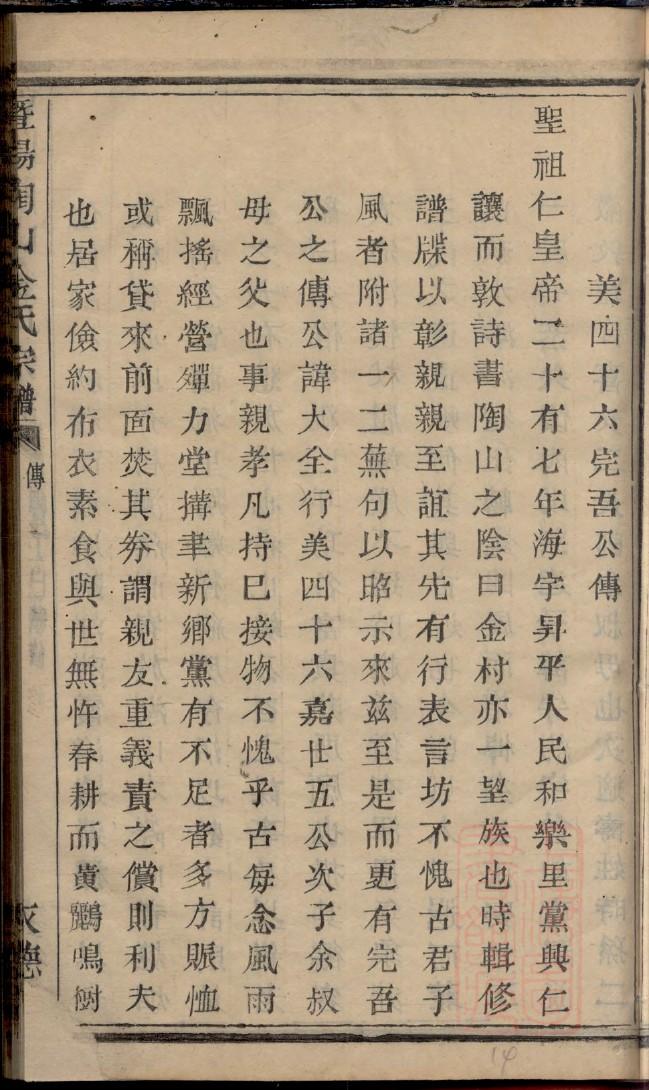 美四十六完吾公傳
聖祖仁皇帝二十有七年海宇昇平人民和樂里黨興仁
讓而敦詩書陶山之陰曰金村亦一望族也時輯修
譜牒以彰親親至誼其先有行表言坊不愧古君子
風者附諸一二蕪句以昭示來兹至是而更有完吾
公之傳公諱大全行美四十六嘉廿五公次子余叔
母之父也事親孝凡持已接物不愧乎古每念風雨
飄搖經營殫力堂搆聿新鄉黨有不足者多方賑恤
或稱貸來前面焚其券謂親友重義責之償則利夫
也居家儉約布衣素食與世無忤春耕而黃鸝鳴樹
暨陽陶山金氏宗譜
傳